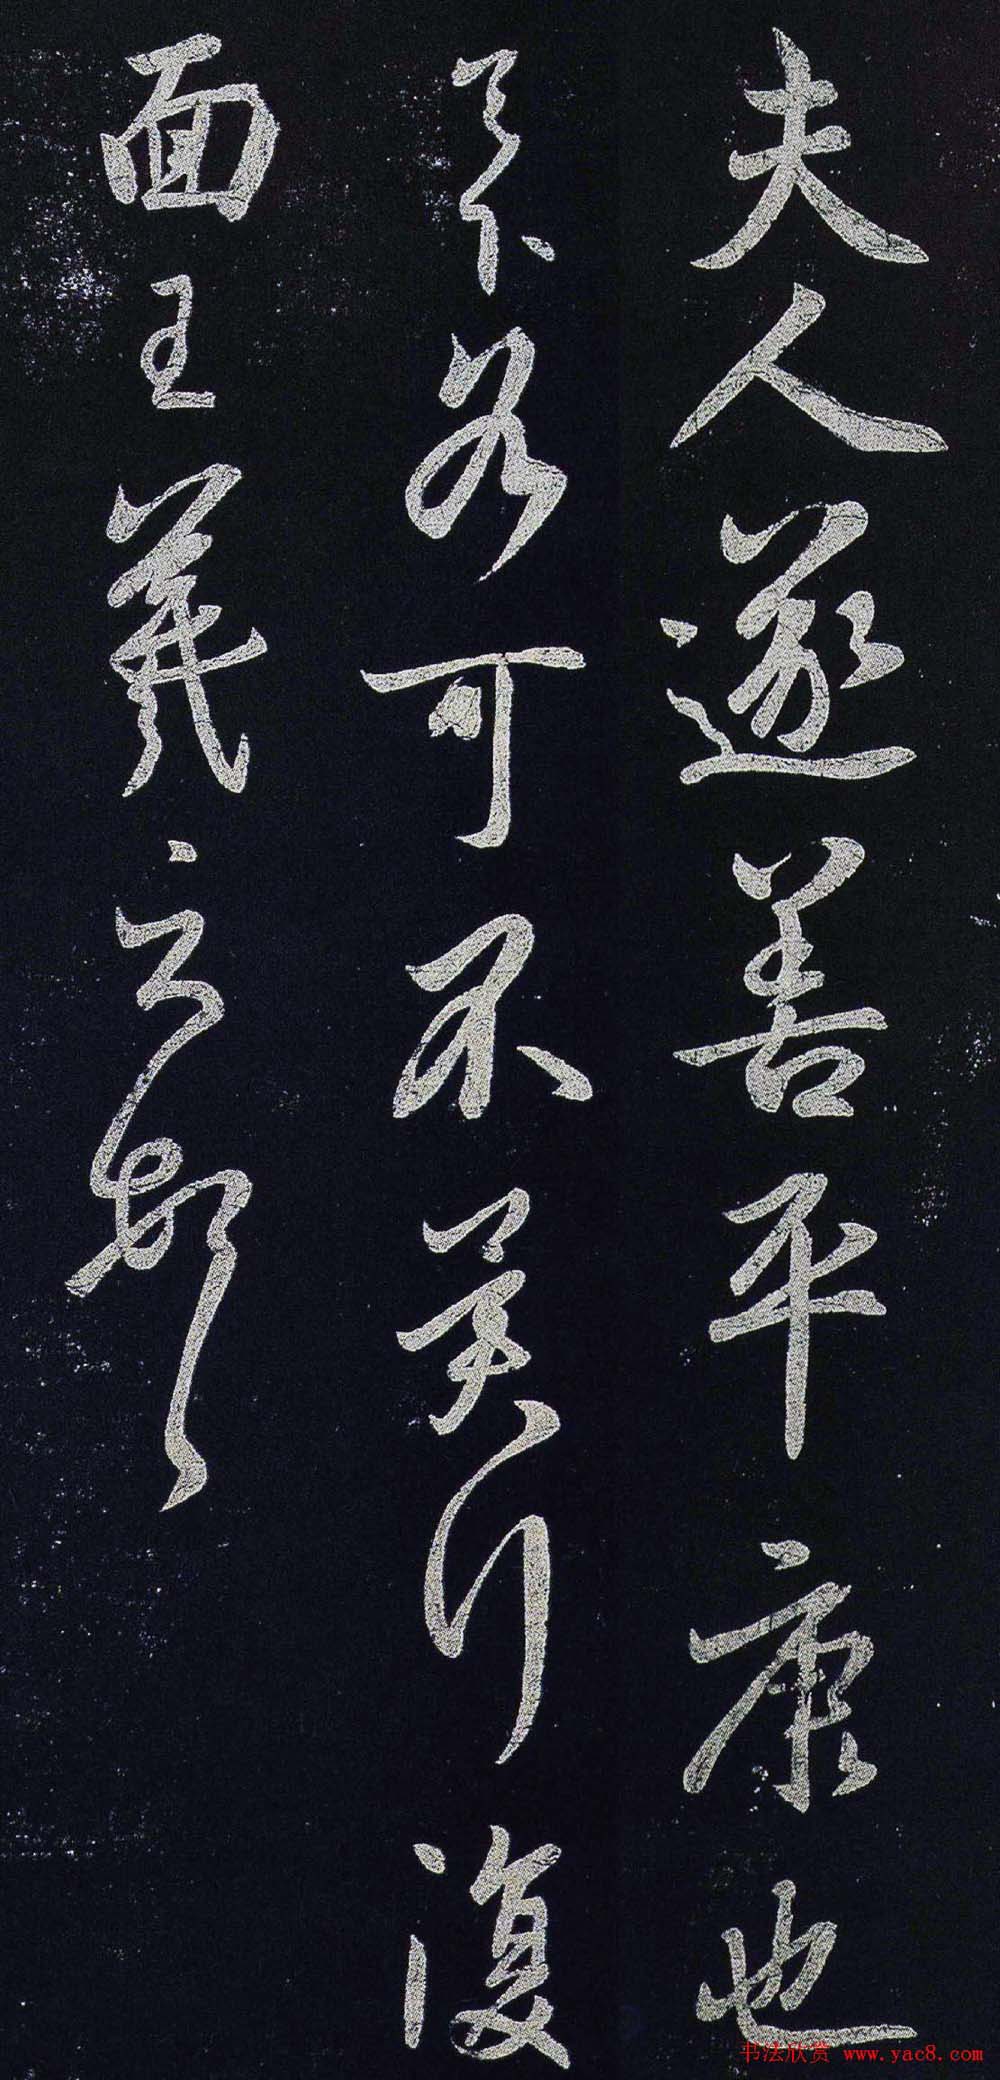 夫人遂善平康也
足下各可不冀行復
面王羲之頓首
书法欣赏 www.yac8.com